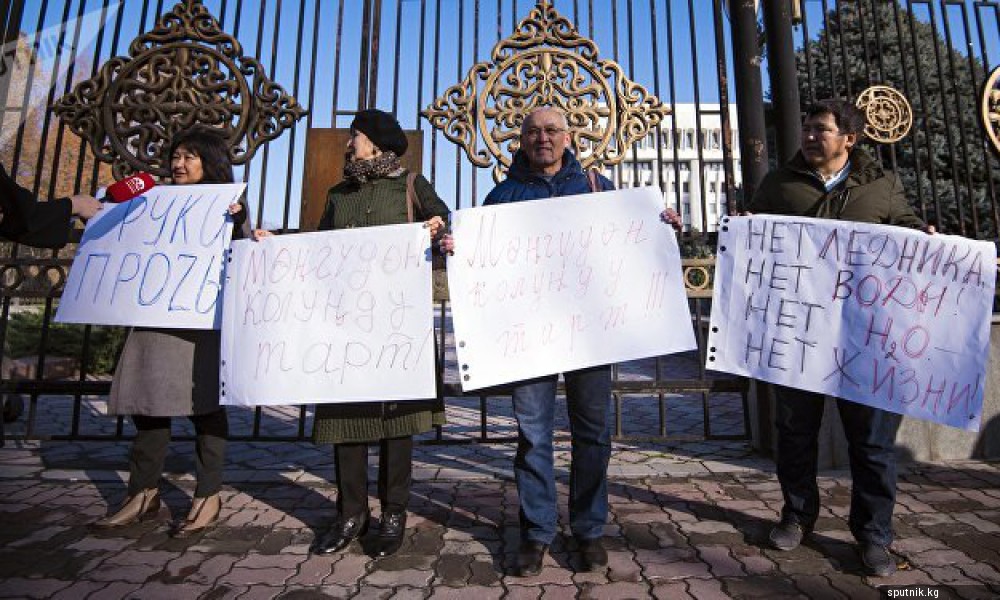 РУКИ
ПРОZЬ
МӨҢГҮДӨН
КОЛУҢДУ
тарт!
Мөңгүдөн
колуңду
тарт!!!
НЕТ ЛЕДНИКА,
НЕТ ВОДЫ!
НЕТ H₂O. —
НЕТ ЖИЗНИ!
sputnik.kg